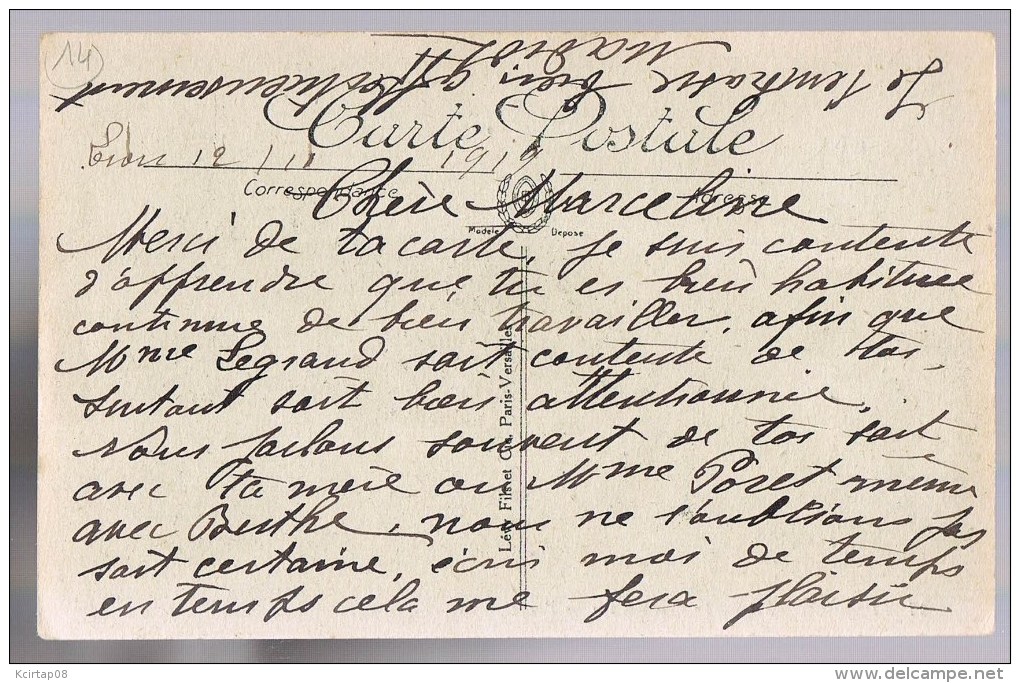 14
Je t'embrasse bien affectueusement
Carte Postale
12/11 1919
Correspondance
Adresse
Chère Marceline
Modèle Déposé
Merci de ta carte, je suis contente
d'apprendre que tu es bien habituee
continue de bien travailler, afin que
Mme Legrand soit contente de toi,
surtout soit bien attentionnée,
nous parlons souvent de toi soit
avec ta mère ou Mme Poret même
avec Berthe, nous ne t'oublions pas
soit certaine, écris moi de temps
en temps cela me fera plaisir
Lévy Fils et Cie, Paris-Versailles
Kcirtap08
http://www.delcampe.net